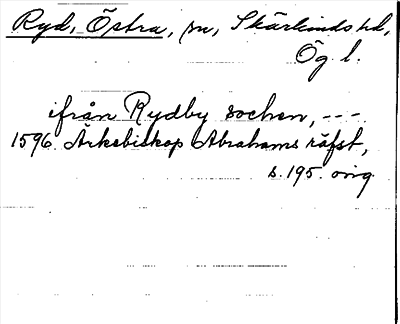 Ryd, Östra, sn, Skärkinds hd,
Ög. l.
ifrån Rydby sochen, ---
1596. Ärkebiskop Abrahams räfst,
s. 195. orig.